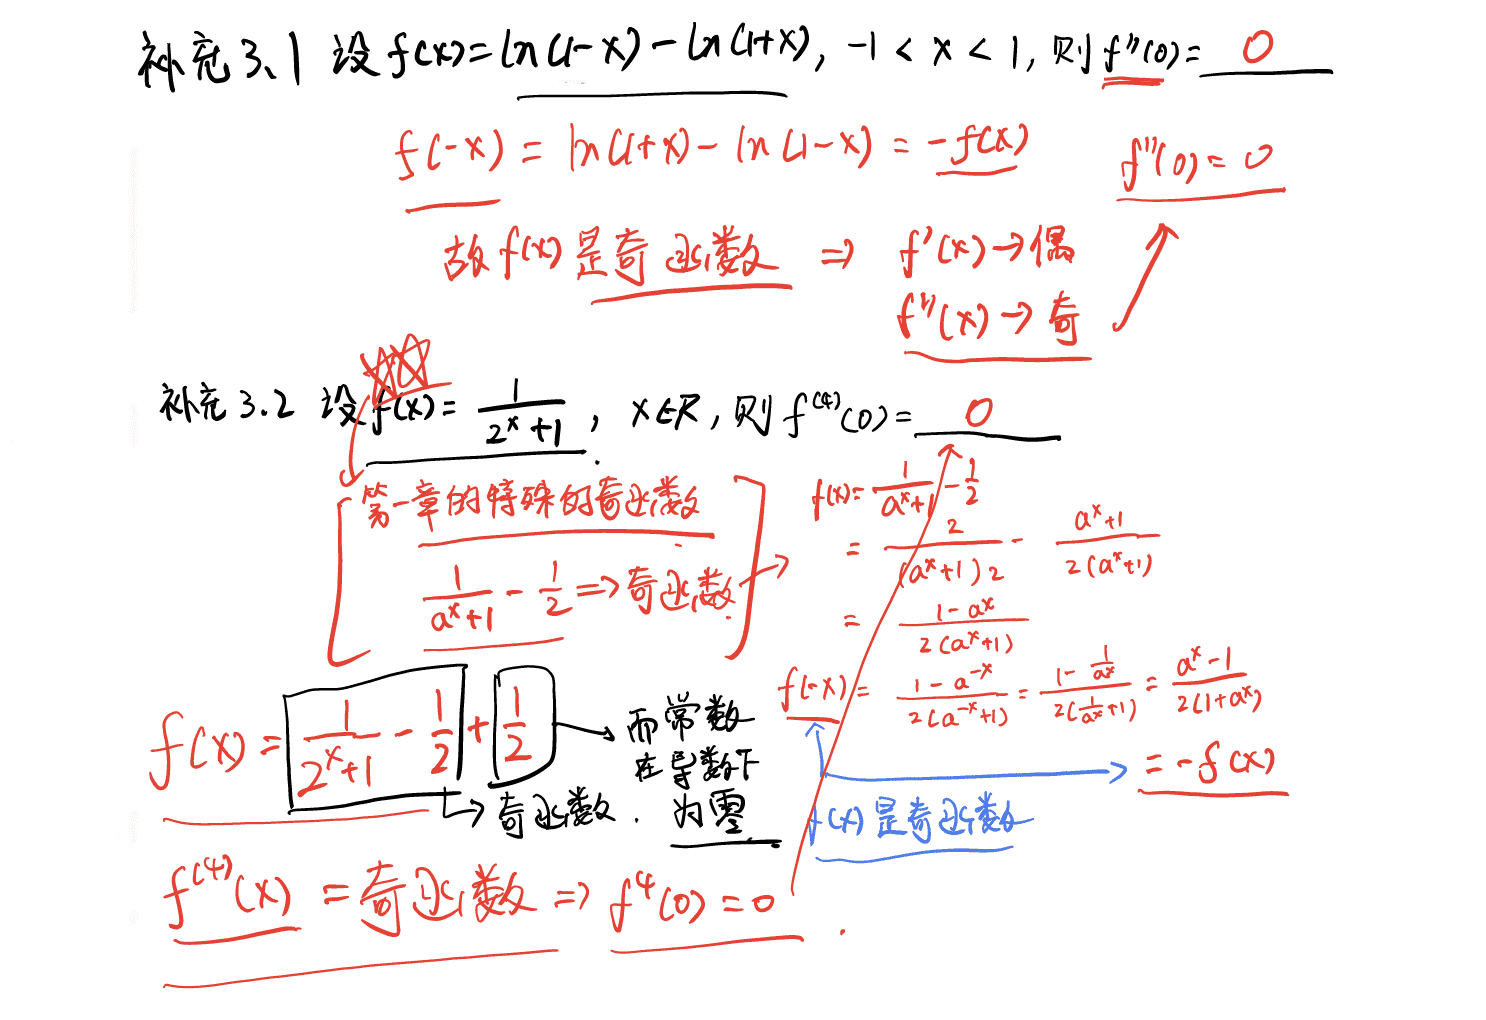 补充3.1 设 f(x)=ln(1-x)-ln(1+x), -1<x<1, 则 f''(0)= 0
f(-x) = ln(1+x)-ln(1-x) = -f(x)
f''(0)=0
故 f(x) 是奇函数 ⇒ f'(x)→偶
f''(x)→奇
补充3.2 设 f(x)= 1/(2^x+1), x∈R, 则 f^(4)(0)= 0
第一章的特殊的奇函数
1/(a^x+1) - 1/2 ⇒ 奇函数
f(x)= 1/(a^x+1) - 1/2
= 2/((a^x+1)2) - (a^x+1)/(2(a^x+1))
= (1-a^x)/(2(a^x+1))
f(-x)= (1-a^-x)/(2(a^-x+1)) = (1-1/a^x)/(2(1/a^x+1)) = (a^x-1)/(2(1+a^x))
= -f(x)
f(x)是奇函数
f(x) = 1/(2^x+1) - 1/2 + 1/2
→奇函数.
→而常数
在导数下
为零
f^(4)(x) = 奇函数 ⇒ f^4(0)=0.